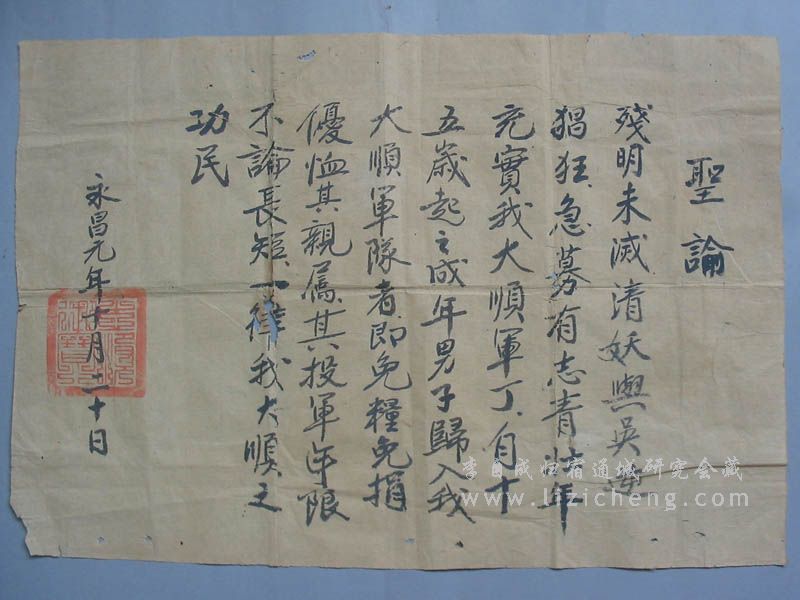 聖諭
殘明未滅清妖與吳
猖狂急募有志青壯年
充實我大順軍丁自十
五歲起之成年男子歸入我
大順軍隊者即免糧免捐
優恤其親屬其投軍年限
不論長短一律我大順之
功民
永昌元年十月二十日
李自成归宿通城研究会藏
www.lizicheng.com